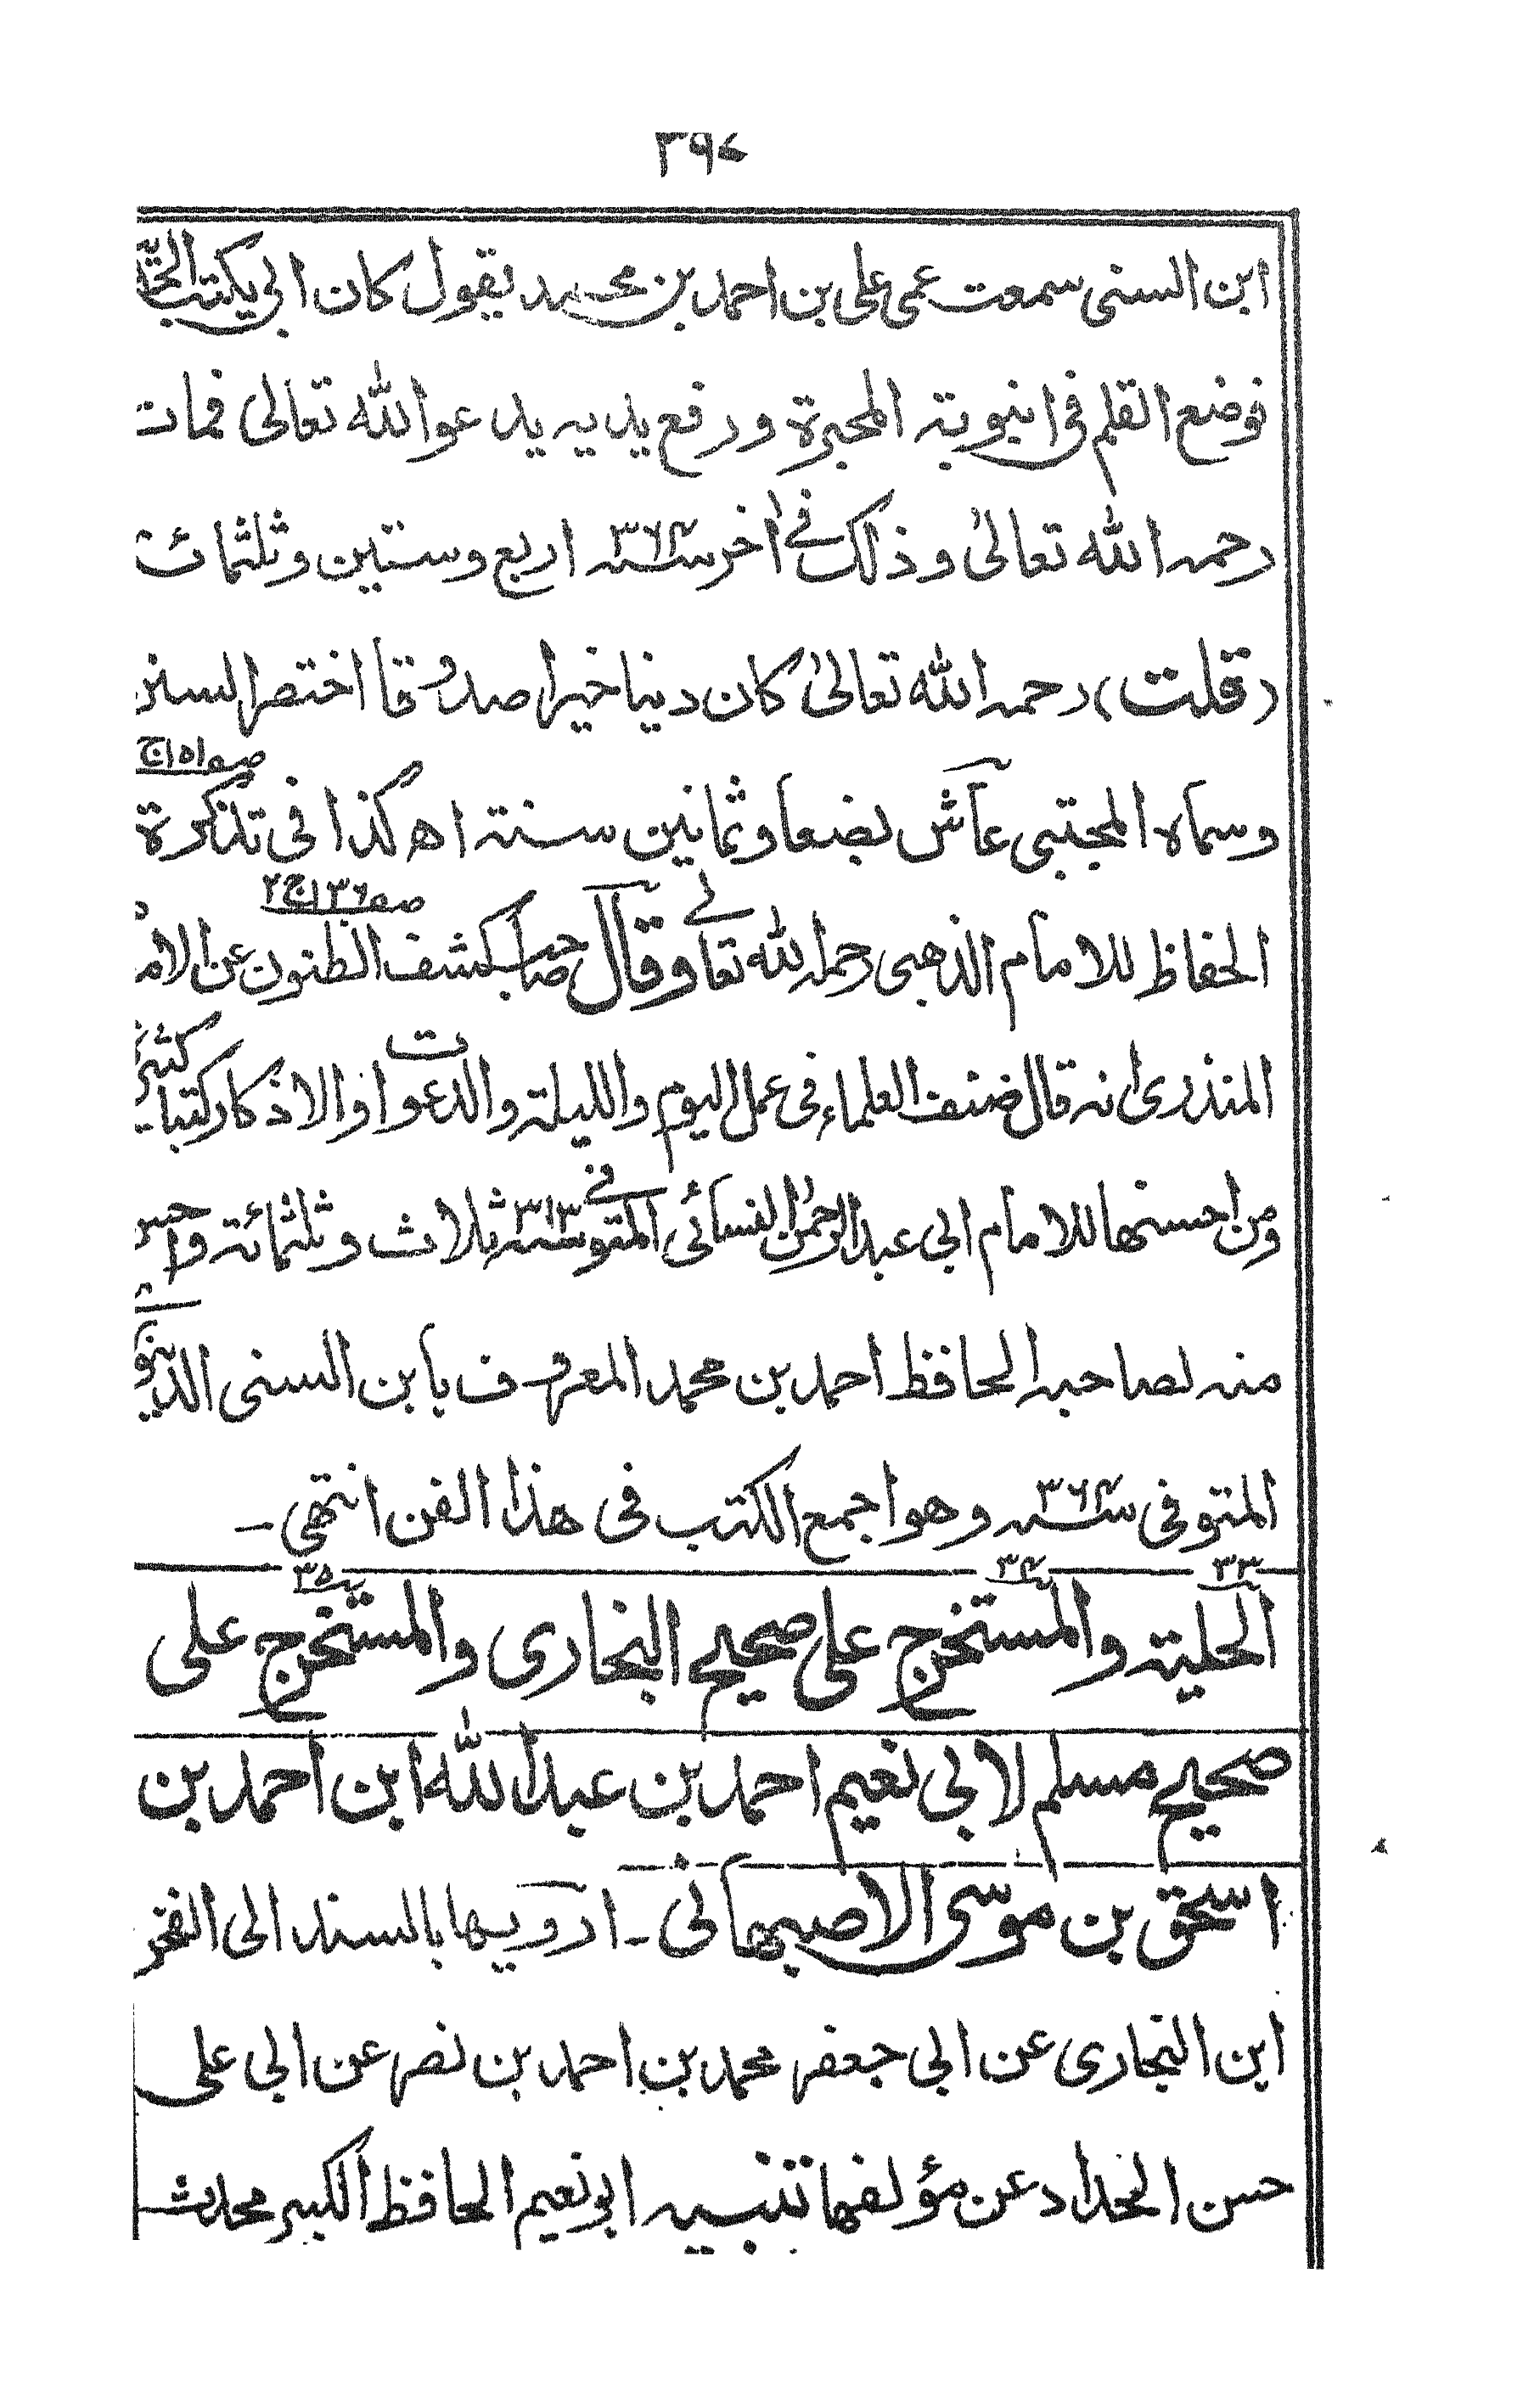 ٣٩٧
ابن السنى سمعت عمى على بن احمد بن محمد يقول كان ابى يكتب
فوضع القلم فى انبوبة المحبرة ورفع يديه يدعو الله تعالى فمات
رحمه الله تعالىٰ وذلك فى اٰخر سنه ٣٦٤ اربع وستين وثلثمائة
(قلت) رحمه الله تعالىٰ كان دينا خيرا صدوقا اختصر السنن
وسماه المجتبى عاش بضعا وثمانين سنة اھ كذا فى تذكرة صـ١٥١ج
الحفاظ للامام الذهبى رحمه الله تعالى وقال صاحب كشف الظنون صـ١٣٦ج٢ عن الامام
المنذرى انه قال صنف العلماء فى عمل اليوم والليلة والدعوات والاذكار كتبا كثيرة
ومن احسنها للامام ابى عبد الرحمٰن النسائى المتوفى سنه ٣١٣ ثلاث وثلثمائة واحسن
منه لصاحبه الحافظ احمد بن محمد المعروف بابن السنى الدينورى
المتوفى سنه ٣٦٤ وهو اجمع الكتب فى هذا الفن انتهى ـ
٣٣ ٣٤ ٣٥
الحلية والمستخرج على صحيح البخارى والمستخرج على
صحيح مسلم لابى نعيم احمد بن عبد الله ابن احمد بن
اسحق بن موسى الاصبهانى ـ ارويها بالسند الى الفخر
ابن البخارى عن ابى جعفر محمد بن احمد بن نصر عن ابى على
حسن الحداد عن مؤلفها تنبيه ابو نعيم الحافظ الكبير محدث